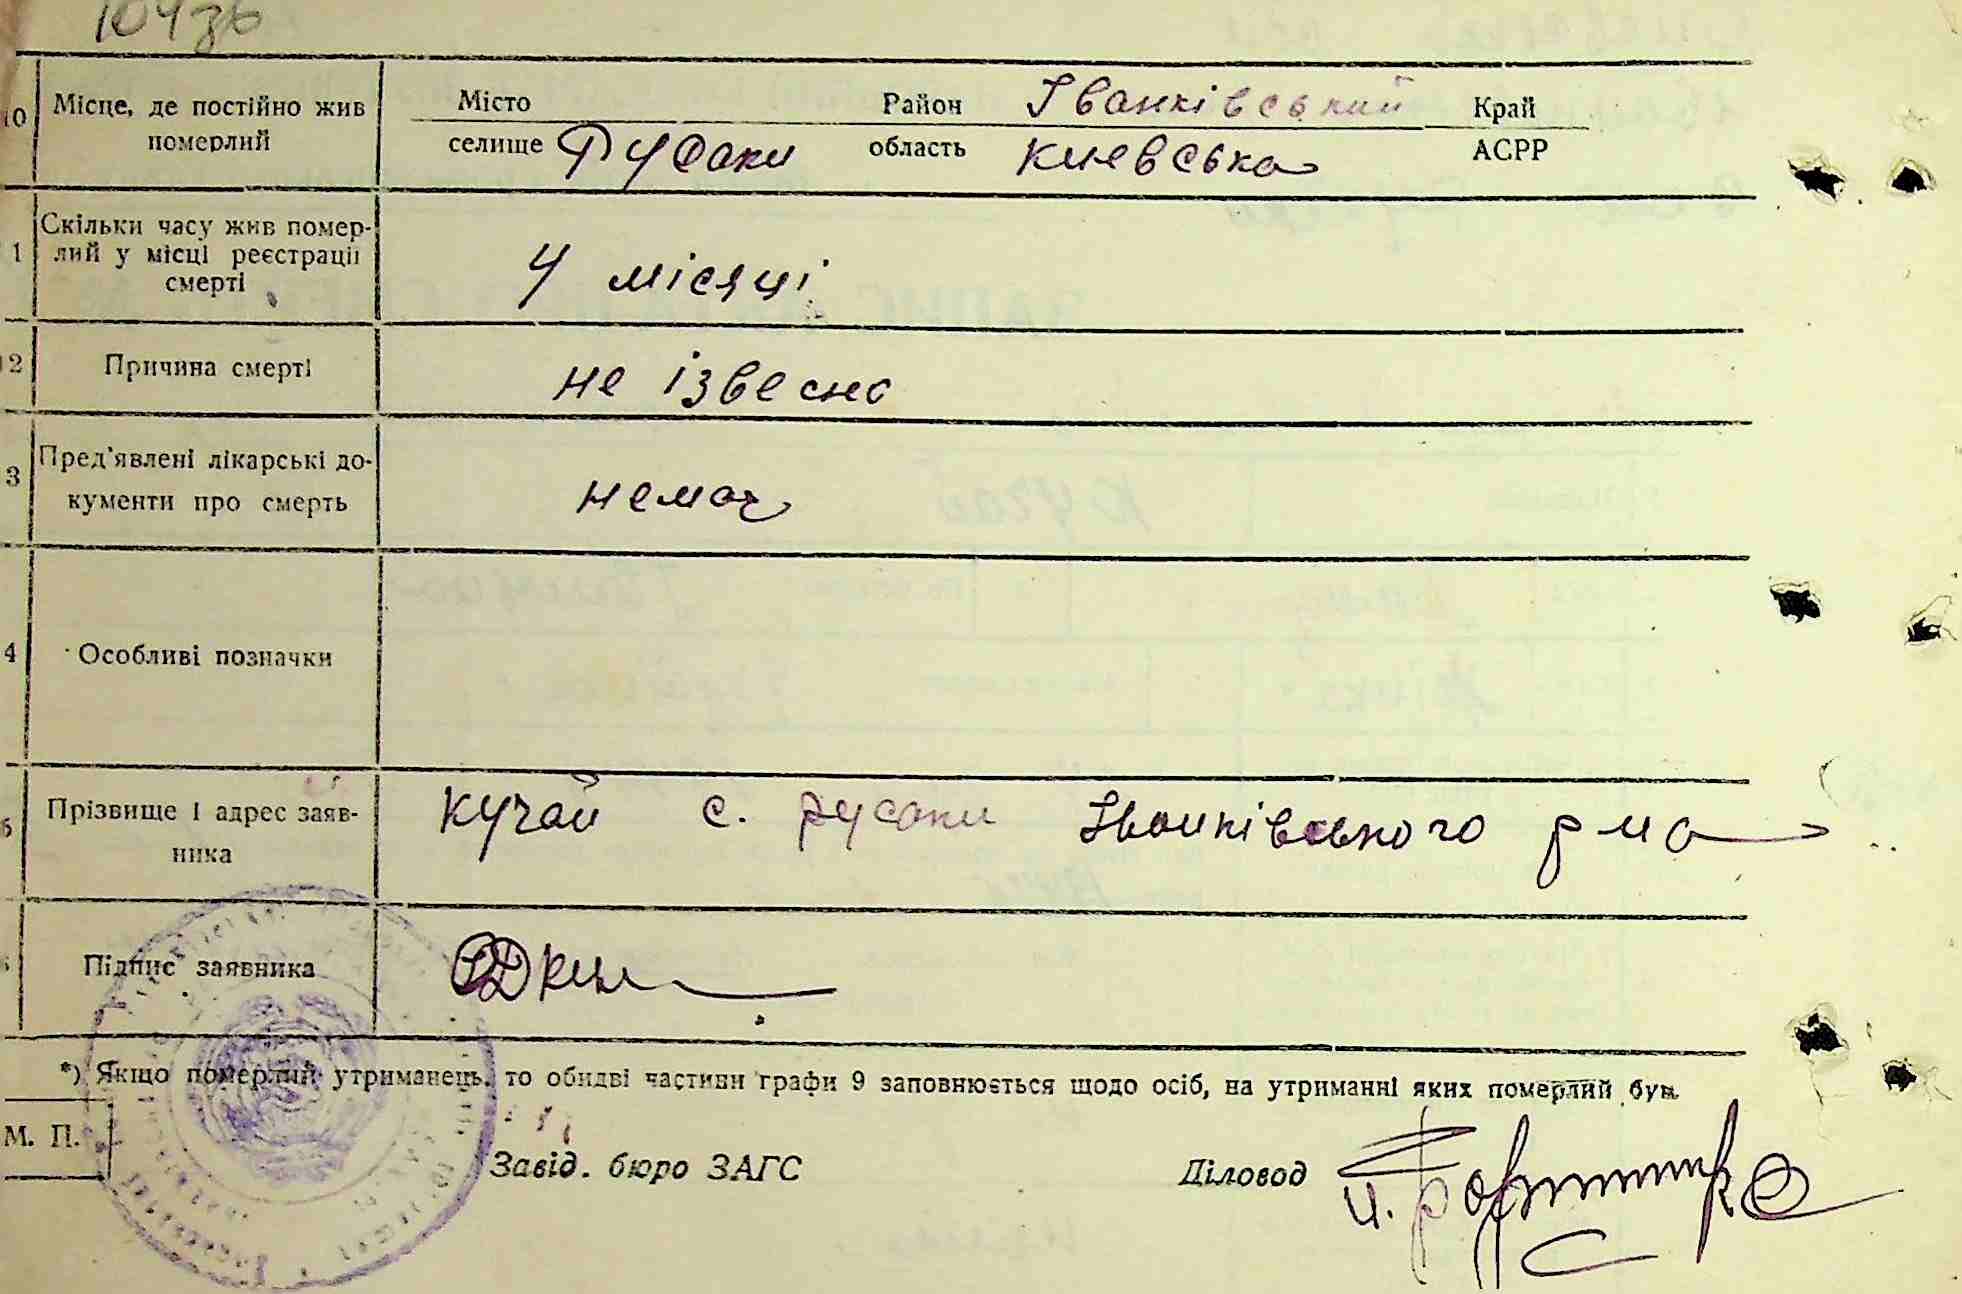 10
Місце, де постійно жив
померлий
Місто Район Іванківський Край
селище Русаки область Киевська АСРР
1
Скільки часу жив помер-
лий у місці реєстрації
смерті
4 місяці
2
Причина смерті
не ізвесно
3
Пред'явлені лікарські до-
кументи про смерть
немає
4
Особливі позначки
5
Прізвище і адрес заяв-
ника
Кучай с. русаки Іванківського р-на
Підпис заявника
*) Якщо померлий утриманець, то обидві частини графи 9 заповнюється щодо осіб, на утриманні яких померлий був.
М. П.
Завід. бюро ЗАГС Діловод